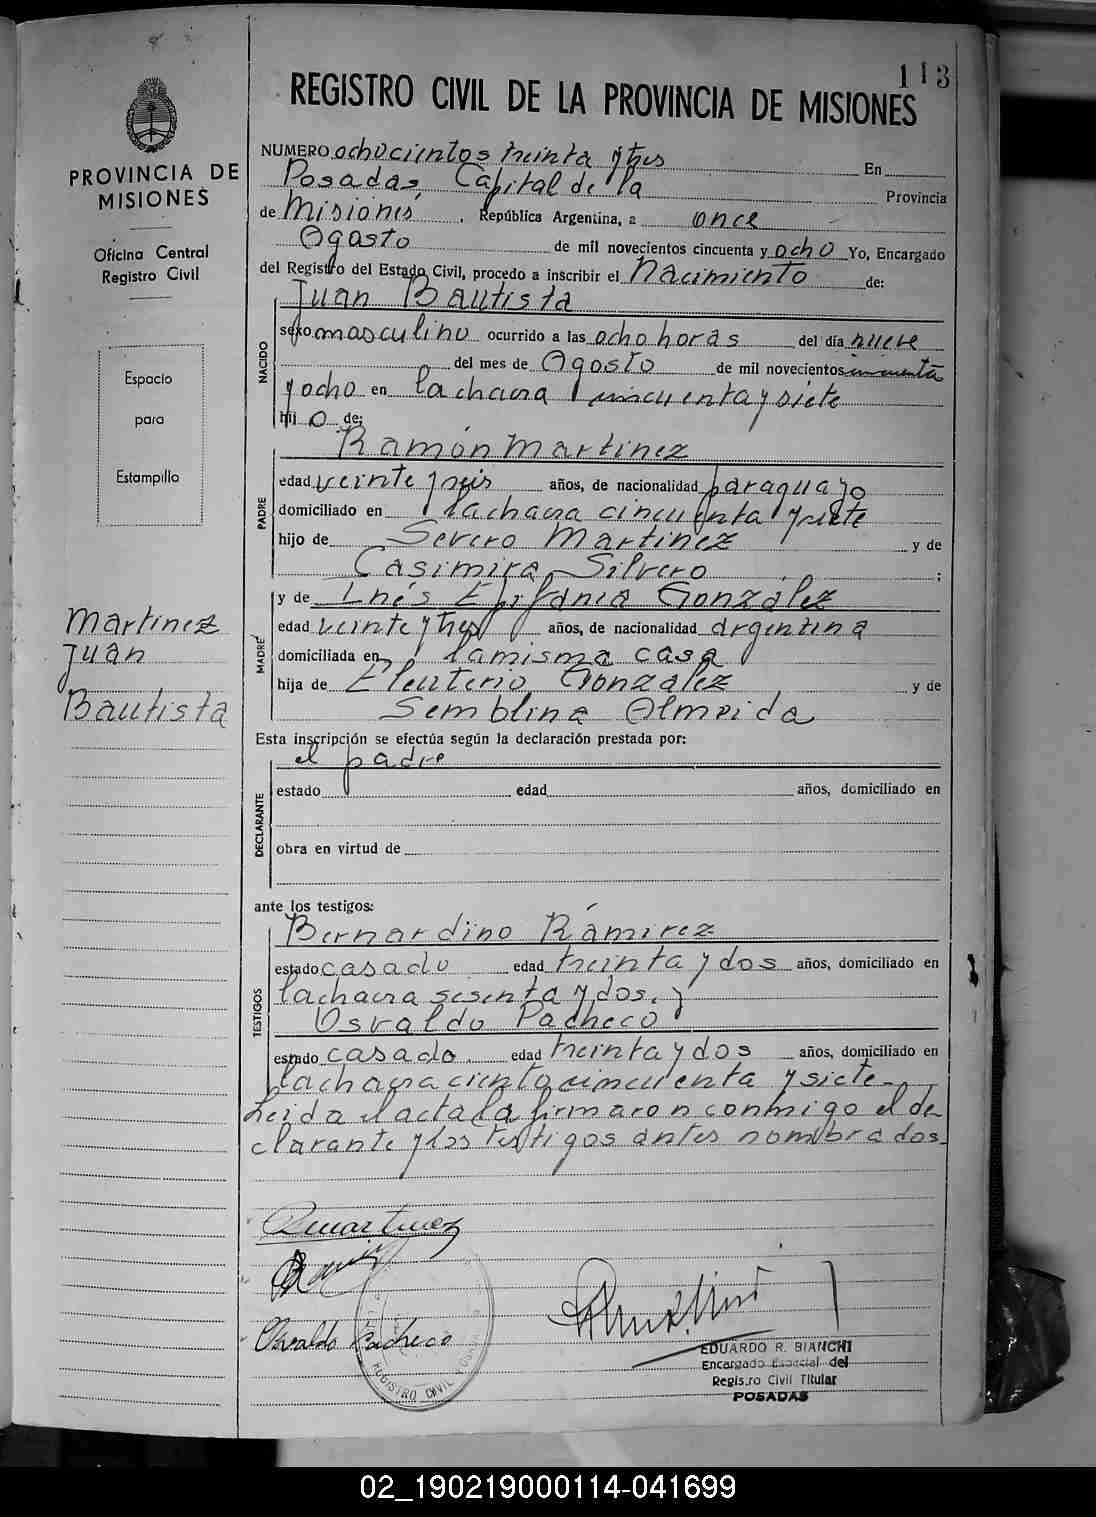 113
REGISTRO CIVIL DE LA PROVINCIA DE MISIONES
PROVINCIA DE
MISIONES
Oficina Central
Registro Civil
Espacio
para
Estampilla
Martinez
Juan
Bautista
NUMERO ochocientos treinta y tres En
Posadas, Capital de la Provincia
de Misiones, República Argentina, a once
Agosto de mil novecientos cincuenta y ocho Yo, Encargado
del Registro del Estado Civil, procedo a inscribir el Nacimiento de:
NACIDO
Juan Bautista
sexo masculino ocurrido a las ocho horas del día nueve
del mes de Agosto de mil novecientos cincuenta
y ocho en la chacra cincuenta y siete
hijo de:
PADRE
Ramón Martinez
edad veinte y seis años, de nacionalidad paraguayo
domiciliado en la chacra cincuenta y siete
hijo de Severo Martinez y de
Casimira Silvero ;
MADRE
y de Inés Epifania González
edad veinte y tres años, de nacionalidad argentina
domiciliada en la misma casa
hija de Eleuterio González y de
Semblina Almeida
Esta inscripción se efectúa según la declaración prestada por:
DECLARANTE
el padre
estado edad años, domiciliado en
obra en virtud de
ante los testigos:
TESTIGOS
Bernardino Rámirez
estado casado edad treinta y dos años, domiciliado en
la chacra sesenta y dos. y
Osvaldo Pacheco
estado casado. edad treinta y dos años, domiciliado en
la chacra ciento cincuenta y siete-
Leida el acta la firmaron conmigo el de
clarante y los testigos antes nombrados-
RMartinez
Osvaldo Pacheco
REGISTRO CIVIL
EDUARDO R. BIANCHI
Encargado Especial del
Registro Civil Titular
POSADAS
02_190219000114-041699